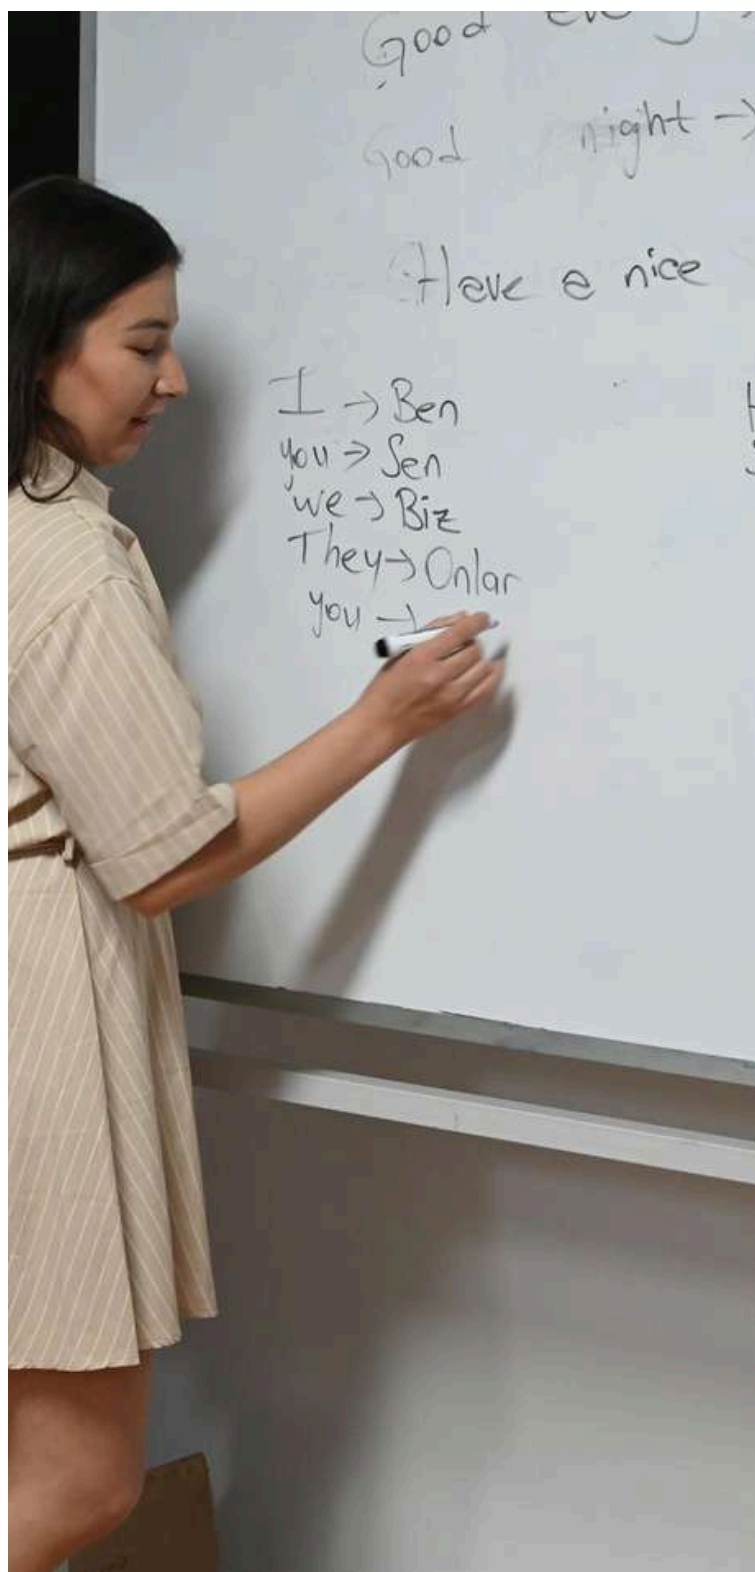 Good
Good night →
Have a nice
I → Ben
you → Sen
we → Biz
They → Onlar
you →